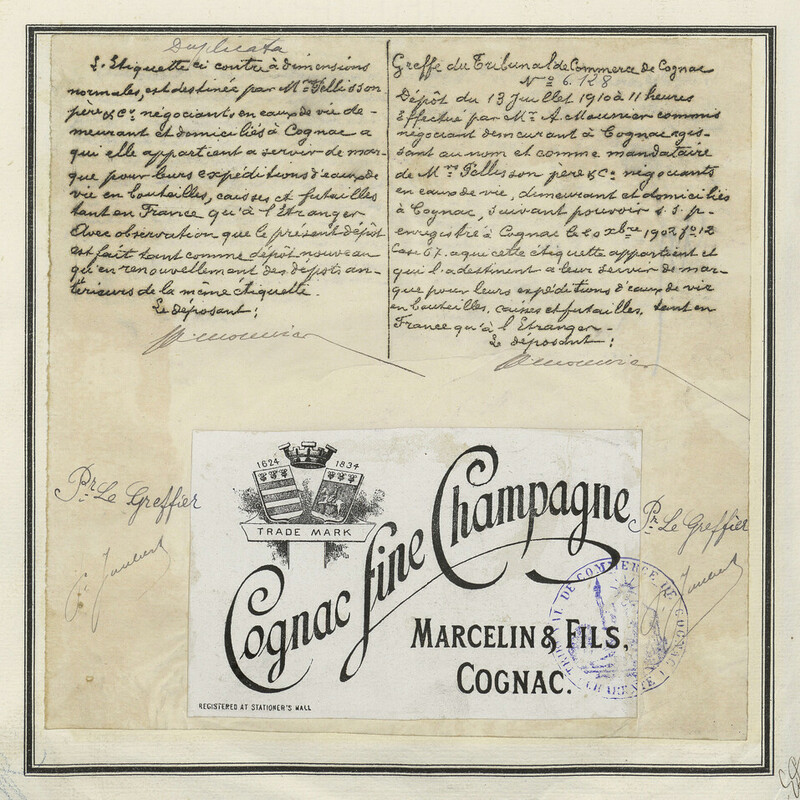 Duplicata
L'Etiquette ci contre à dimensions
normales, est destinée par Mrs Pellisson
père & Co. négociants en eaux de vie de-
meurant et domiciliés à Cognac a
qui elle appartient a servir de mar-
que pour leurs expéditions d'eaux de
vie en bouteilles, caisses et futailles
tant en France qu'à l'Etranger
Avec observation que le présent dépôt
est fait tant comme dépôt nouveau
qu'en renouvellement des dépôts an-
térieurs de la même étiquette.
Le déposant:
A. Mounier
Greffe du Tribunal de Commerce de Cognac
No 6.128
Dépôt du 13 Juillet 1910 à 11 heures
Effectué par Mr. A. Mounier commis
négociant demeurant à Cognac agis-
sant au nom et comme mandataire
de Mrs Pellisson père & Co. négociants
en eaux de vie, demeurant et domiciliés
à Cognac, suivant pouvoir s.s.p.
enregistré à Cognac le 10 xbre 1902 fo 12
Case 67. a qui cette étiquette appartient et
qui l'a destinent à leur servir de mar-
que pour leurs expéditions d'eaux de vie
en bouteilles, caisses et futailles, tant en
France qu'à l'Etranger.-
Le déposant:
A. Mounier
Pr. Le Greffier
Pr. Le Greffier
1624 1834
TRADE MARK
Cognac fine Champagne
MARCELIN & FILS,
COGNAC.
REGISTERED AT STATIONER'S HALL
TRIBUNAL DE COMMERCE DE COGNAC
CHARENTE